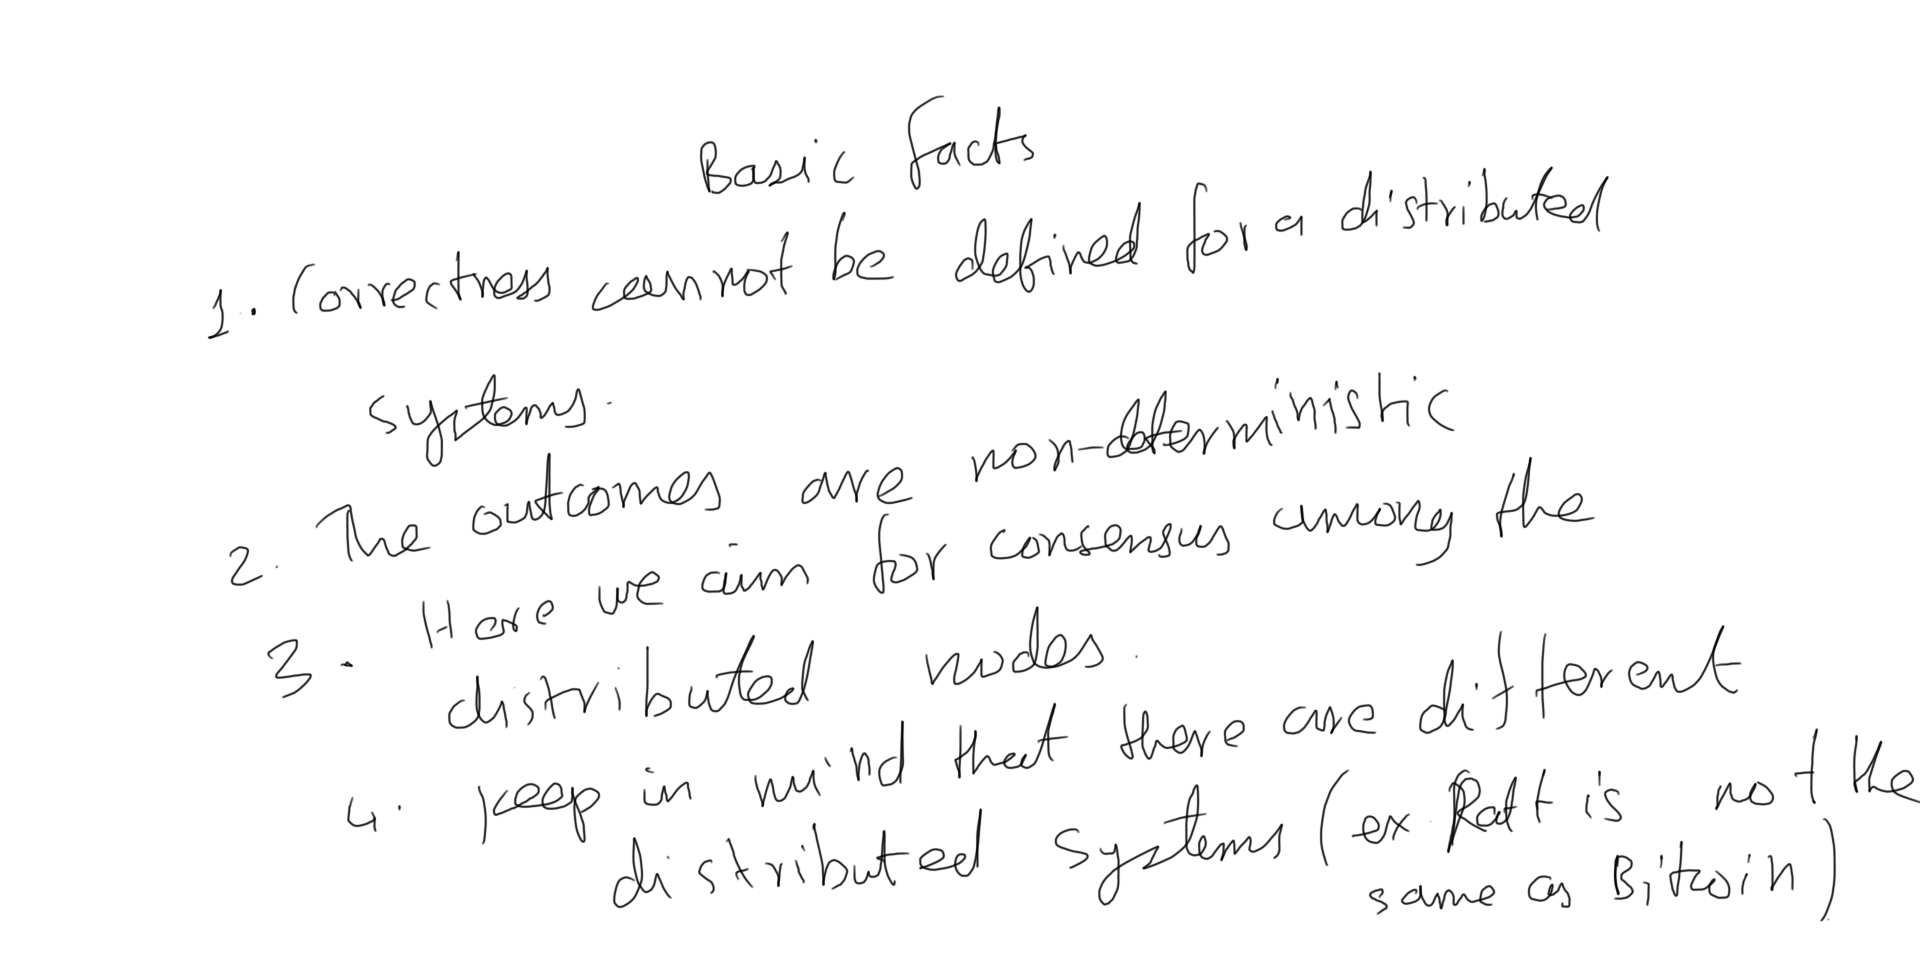 Basic facts
1. Correctness cannot be defined for a distributed
systems.
2. The outcomes are non-deterministic
3. Here we aim for consensus among the
distributed nodes.
4. Keep in mind that there are different
distributed systems (ex Raft is not the
same as Bitcoin)